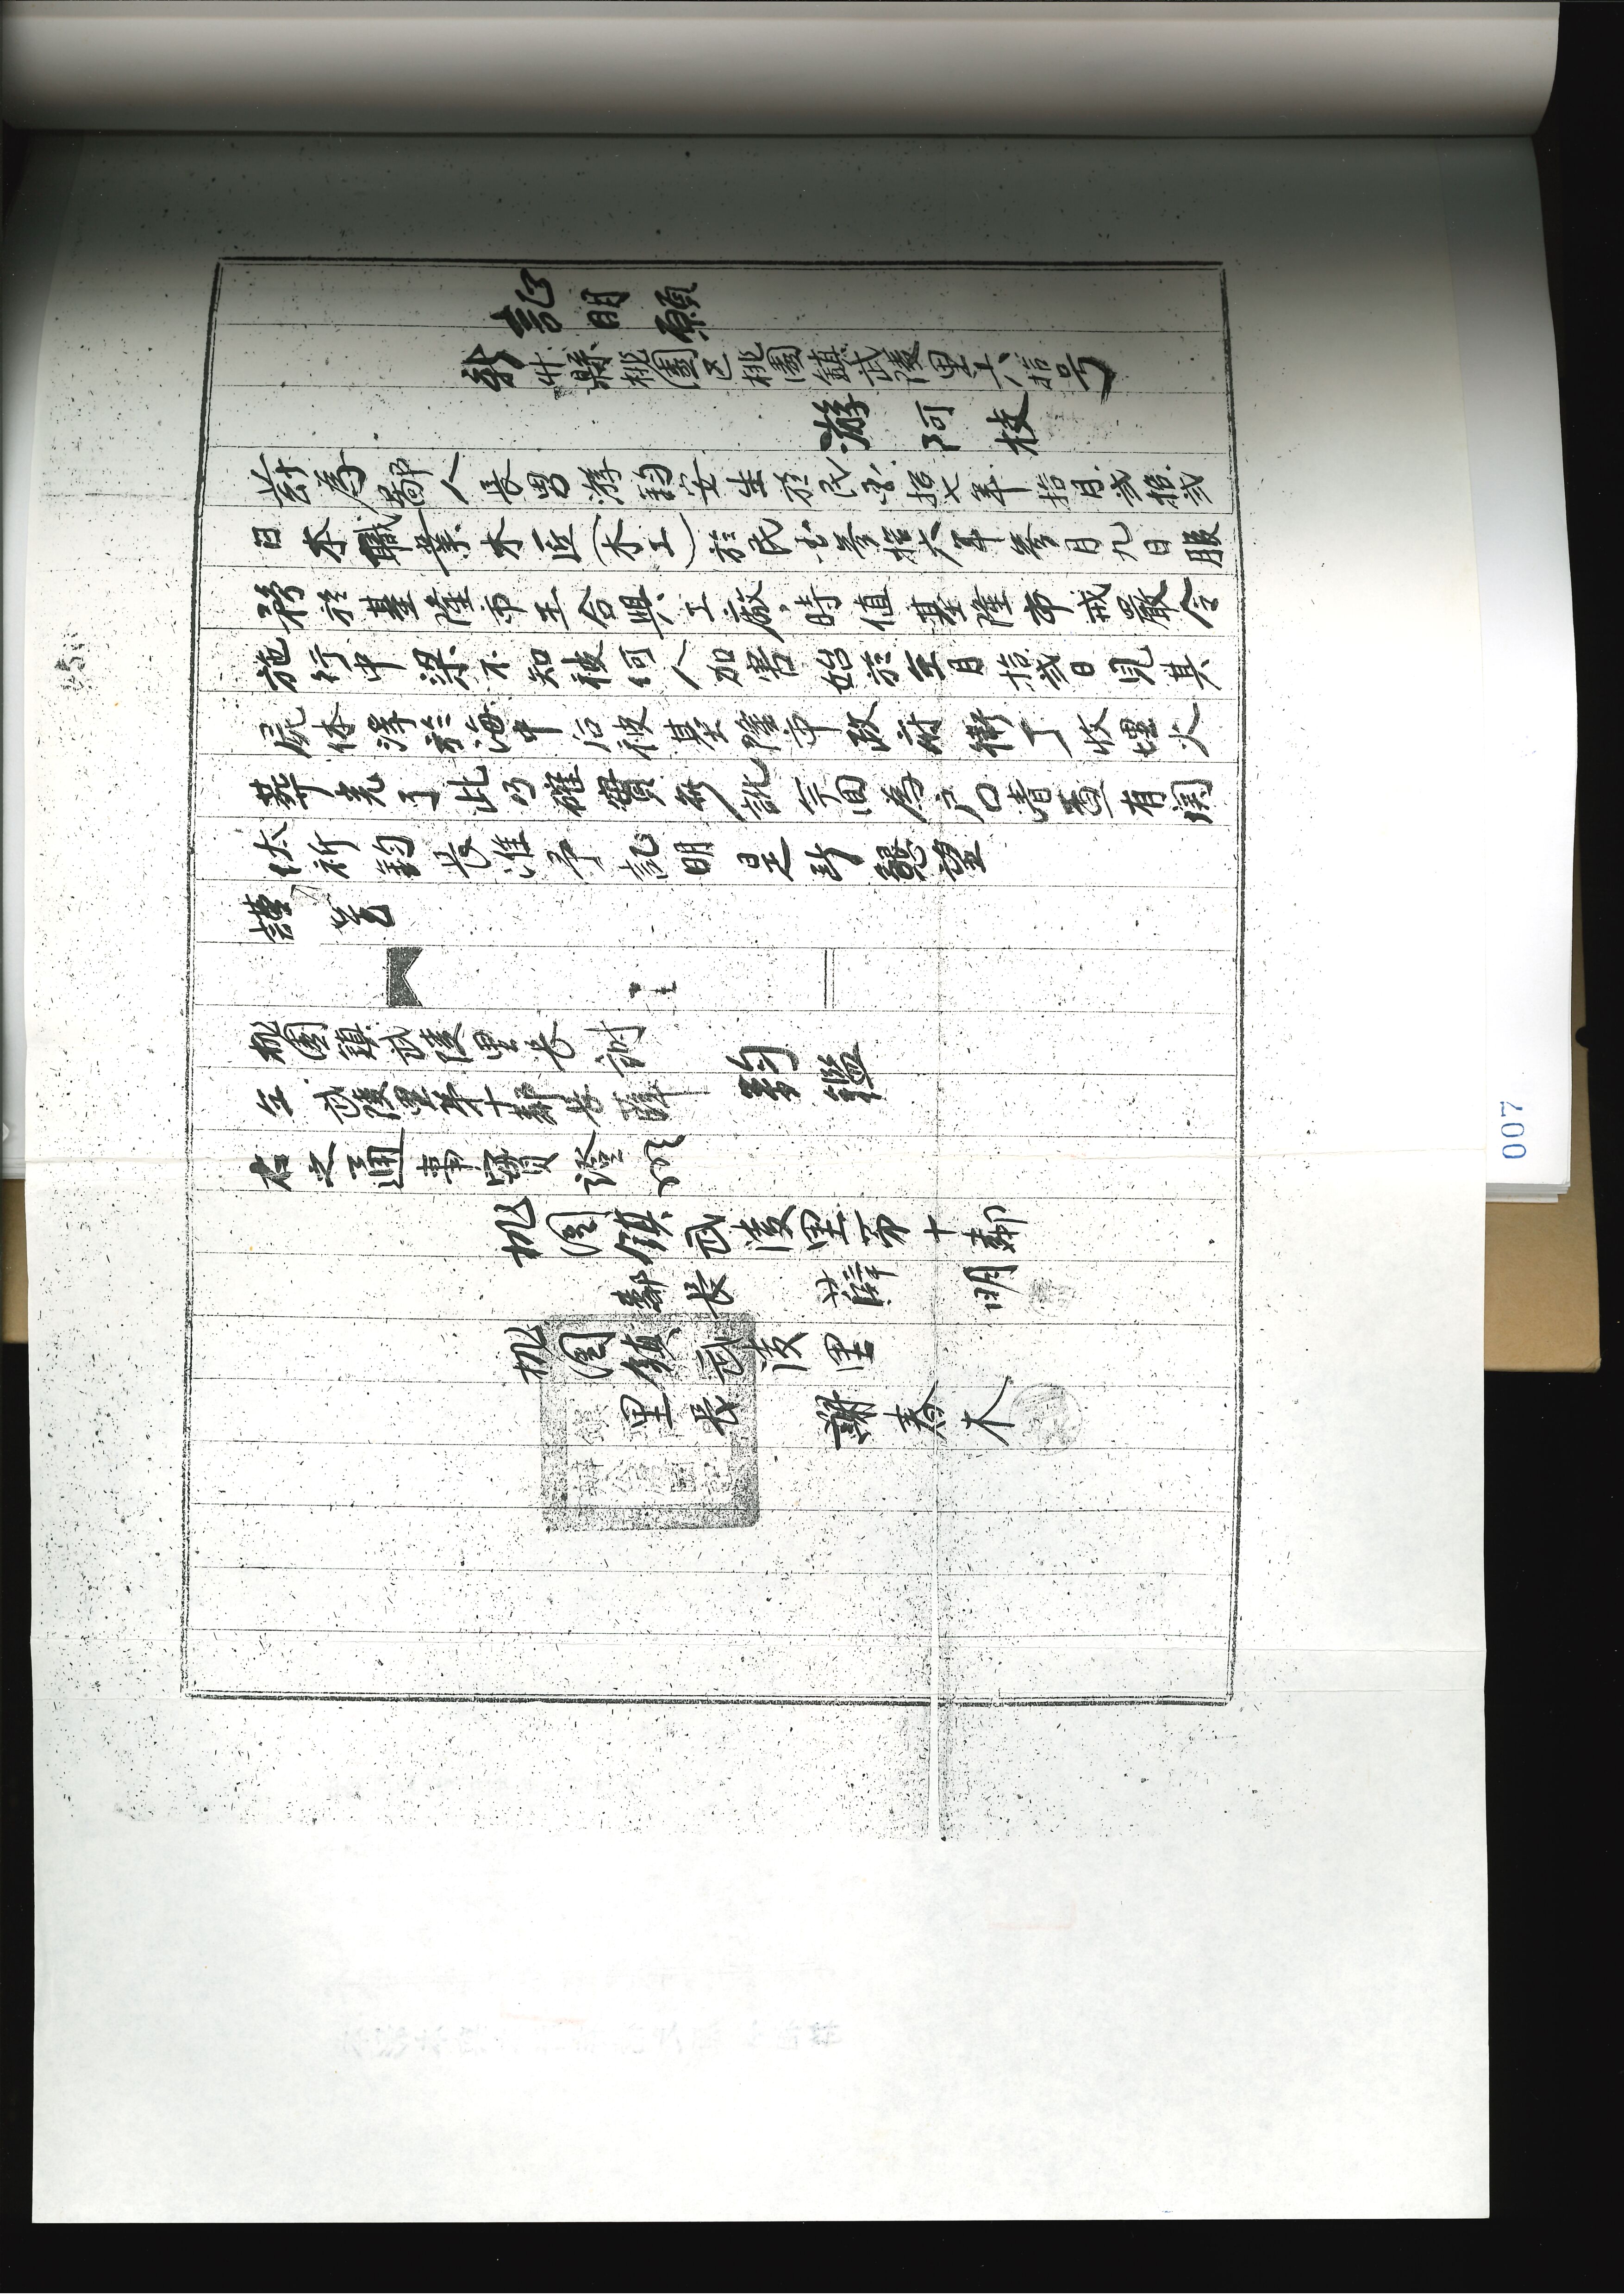 証明願
新竹縣桃園区桃園鎮武陵里六拾号
游阿枝
茲為鄙人長男游鈞安生於民国拾七年拾月弍拾弍
日本職業木匠(木工)於民国參拾六年參月九日服
務於基隆市玉合興工廠,時值基隆市戒嚴令
施行中梁不知被何人加害始於仝月拾弍日見其
屍体浮於海中后被基隆市政府衛了收埋火
葬完了此乃確實無訛今回為户口清查有関
祈鈞長准予証明是所懇望
謹呈
桃園鎮武陵里長謝
仝武陵里第十鄰長薛 鈞鑑
右之通事實證明
桃园鎮武陵里第十鄰
鄰長 薛 明
桃園鎮武陵里
里長 謝春木
007